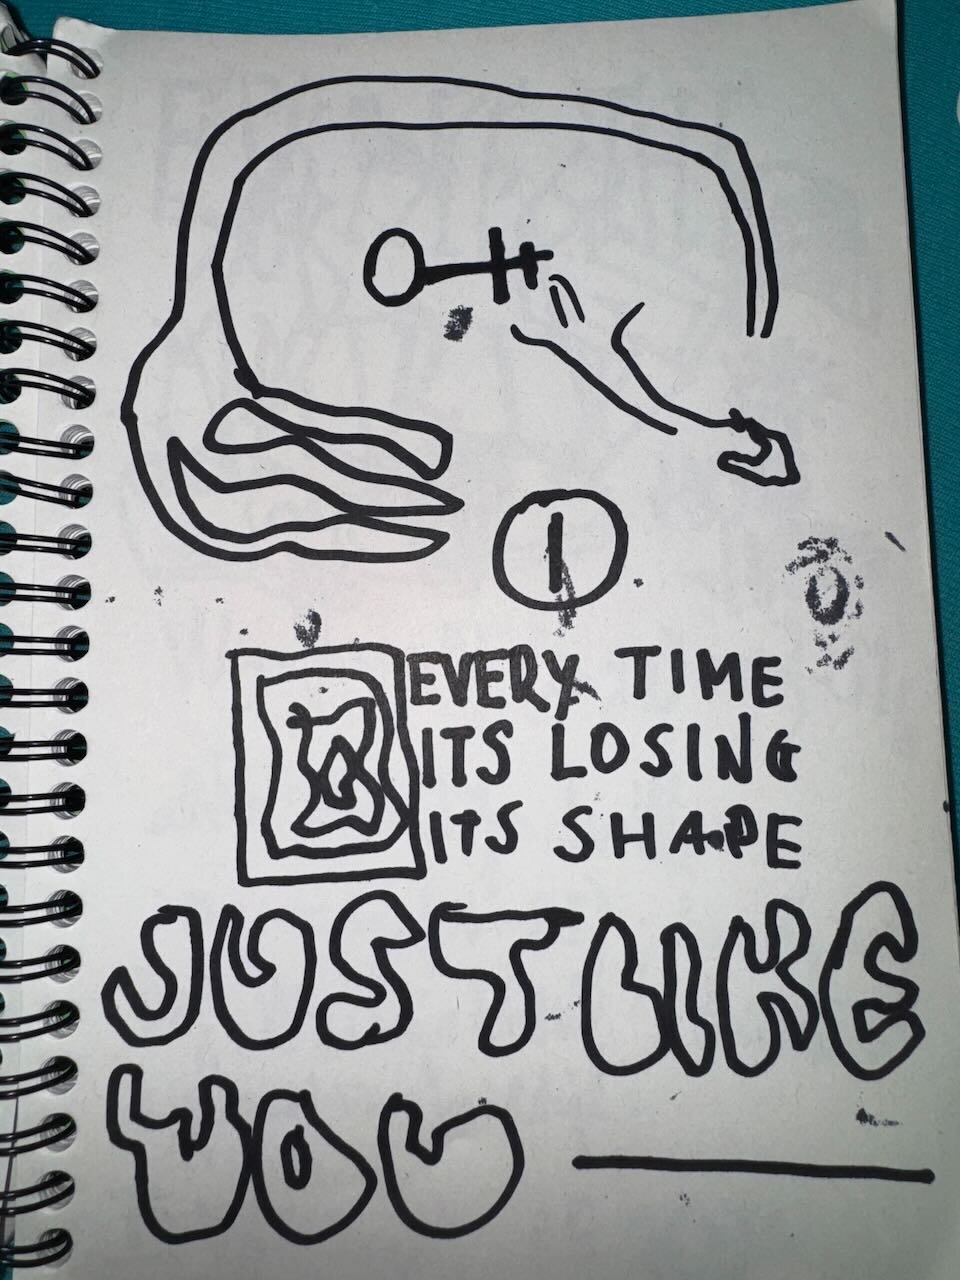 EVERY TIME
ITS LOSING
ITS SHAPE
JUST LIKE
YOU